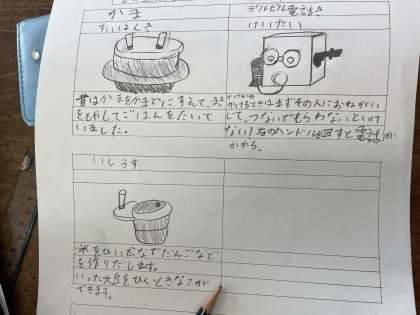 かま
すいはんき
昔はかまをかまどにすえて、まき
をもやしてごはんをたいて
いました。
デルビル電話き
けいたい
かける
はまずその人におねがい
して、つないでもらわないといけ
ない!右のハンドルは回すと電話が
かかる。
いしうす
米をひいだなでだんごなど
を作りだします。
いった大豆をひくときなこが
できます。